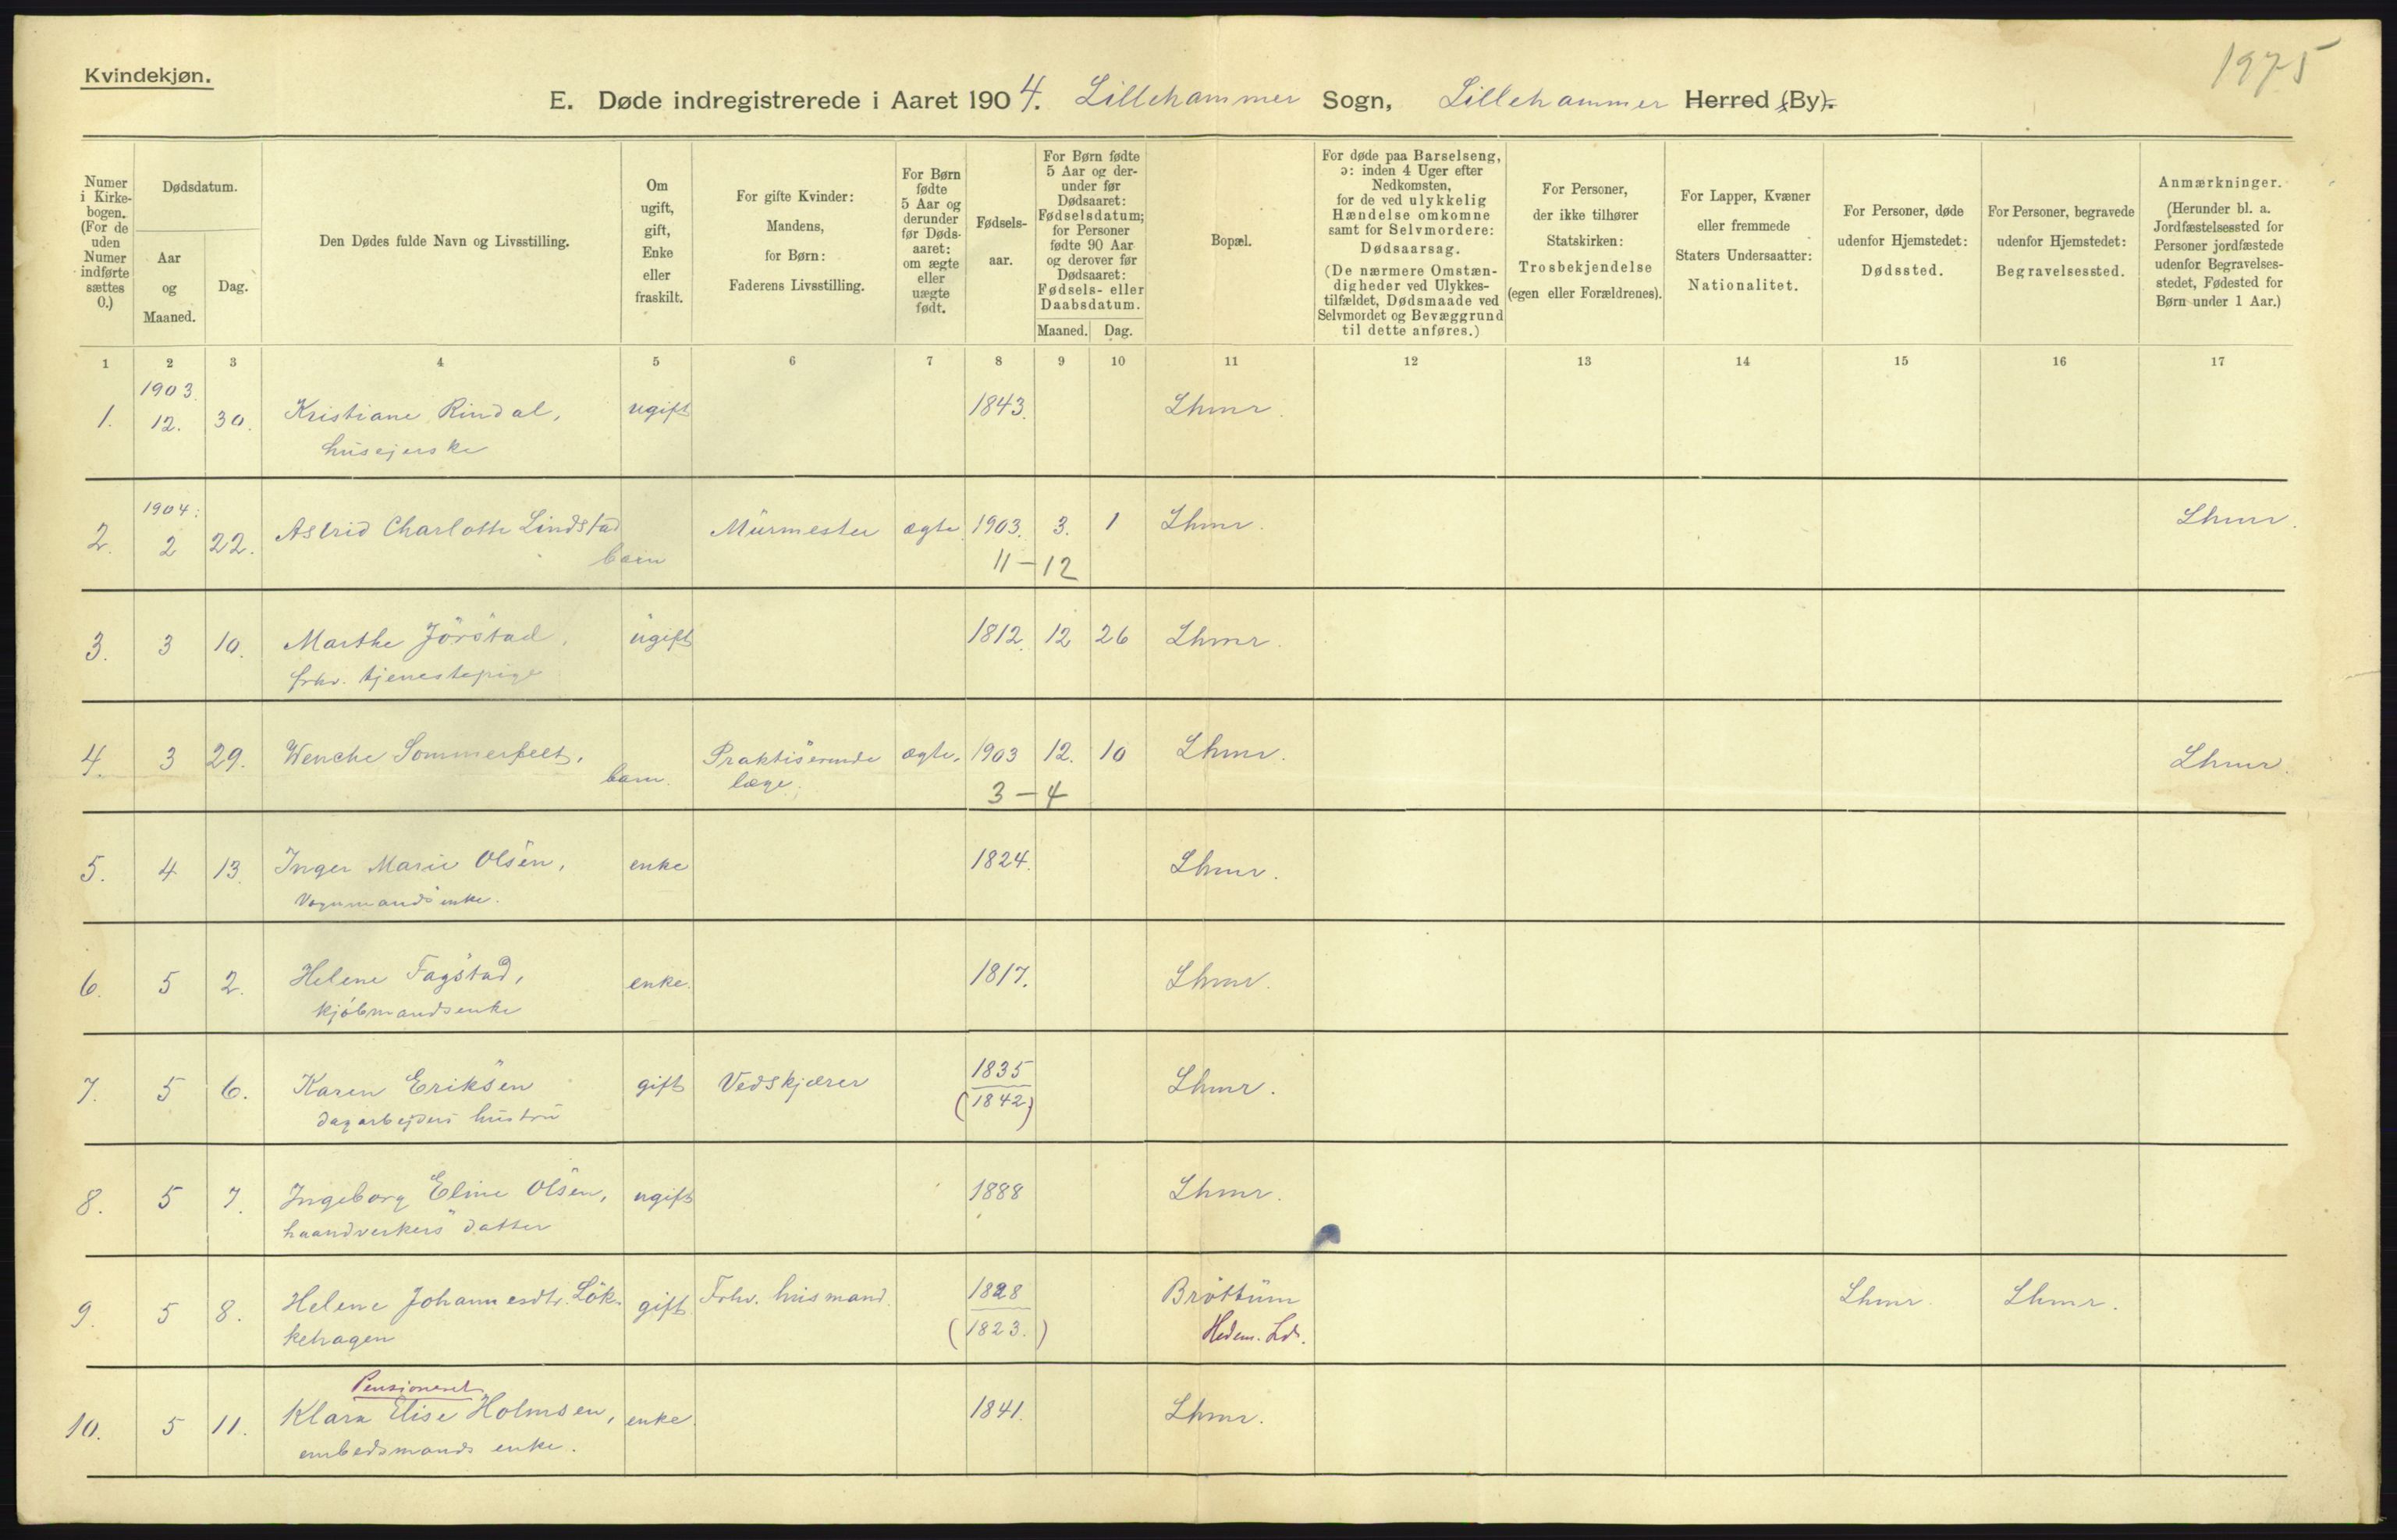 Kvindekjøn.
1975
E. Døde indregistrerede i Aaret 1904. Lillehammer Sogn, Lillehammer Herred (By).
Numer i Kirke-bogen. (For de uden Numer indførte sættes 0.)
Dødsdatum.
Aar og Maaned.
Dag.
Den Dødes fulde Navn og Livsstilling.
Om ugift, gift, Enke eller fraskilt.
For gifte Kvinder: Mandens, for Børn: Faderens Livsstilling.
For Børn fødte 5 Aar og derunder før Døds-aaret: om ægte eller uægte født.
Fødsels-aar.
For Børn fødte 5 Aar og der-under før Dødsaaret: Fødselsdatum; for Personer fødte 90 Aar og derover før Dødsaaret: Fødsels- eller Daabsdatum.
Maaned. Dag.
Bopæl.
For døde paa Barselseng, ɔ: inden 4 Uger efter Nedkomsten, for de ved ulykkelig Hændelse omkomne samt for Selvmordere: Dødsaarsag. (De nærmere Omstæn-digheder ved Ulykkes-tilfældet, Dødsmaade ved Selvmordet og Bevæggrund til dette anføres.)
For Personer, der ikke tilhører Statskirken: Trosbekjendelse (egen eller Forældrenes).
For Lapper, Kvæner eller fremmede Staters Undersaatter: Nationalitet.
For Personer, døde udenfor Hjemstedet: Dødssted.
For Personer, begravede udenfor Hjemstedet: Begravelsessted.
Anmærkninger. (Herunder bl. a. Jordfæstelsessted for Personer jordfæstede udenfor Begravelses-stedet, Fødested for Børn under 1 Aar.)
1 2 3 4 5 6 7 8 9 10 11 12 13 14 15 16 17
1903.
1. 12. 30. Kristiane Rindal, ugift 1843. Lhmr.
husejerske
1904:
2. 2 22. Astrid Charlotte Lindstad Mürmester ægte 1903. 3. 1 Lhmr. Lhmr.
barn
11-12
3. 3 10. Marthe Jörstad, ugift 1812. 12 26 Lhmr.
frhv. tjenestepige
4. 3 29. Wenche Sommerfelt, Praktiserende ægte. 1903 12. 10 Lhmr. Lhmr.
barn. læge.
3-4
5. 4 13. Inger Marie Olsen, enke 1824. Lhmr.
Vognmands enke.
6. 5 2. Helene Fagstad, enke. 1817. Lhmr.
kjöbmandsenke
7. 5 6. Karen Eriksen gift Vedskjærer 1835 Lhmr.
dagarbejders hustru (1842)
8. 5 7. Ingeborg Eline Olsen, ugift 1888 Lhmr.
haandverkers datter
9. 5 8. Helene Johannesdtr. Lök- gift Frhv. husmand. 1828 Bröttum Lhmr. Lhmr.
kehagen (1823.) Hedem. Lds.
Pensioneret
10. 5 11. Klara Elise Holmsen, enke 1841. Lhmr.
embedsmands enke.